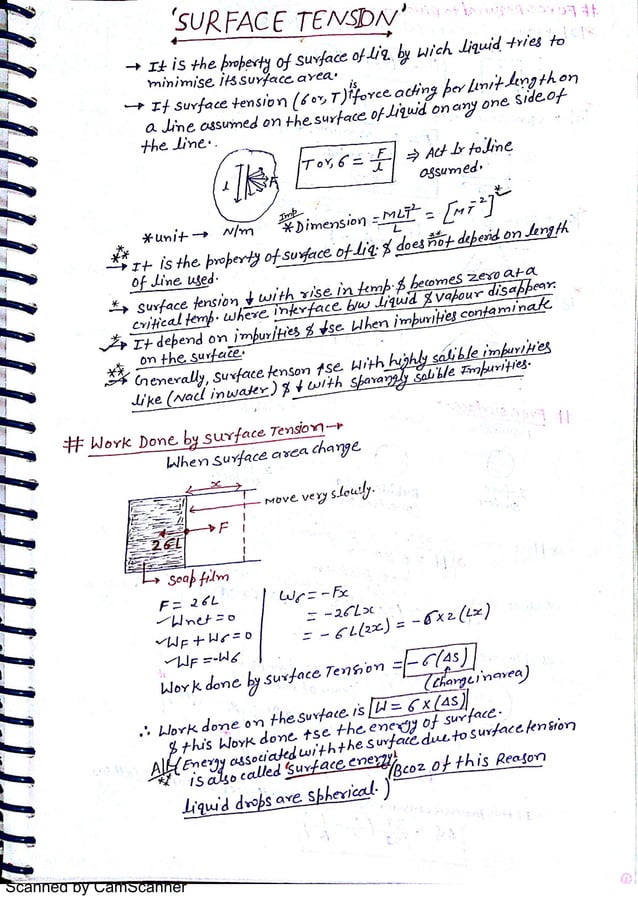 'SURFACE TENSION'
→ It is the property of surface of liq. by wich liquid tries to
minimise its surface area.
→ If surface tension (σ or, T) is force acting per Unit length on
a line assumed on the surface of liquid on any one side of
the line..
l F
T or, σ = F/l ⇒ Act ⊥r to line
assumed.
*unit → N/m
Imp *Dimension = MLT⁻²/L = [MT⁻²]*
** → It is the property of surface of liq. & does not depend on length
of line used.
* → Surface tension ↓ with rise in temp. & becomes zero at a
critical temp. where interface b/w liquid & vapour disappear.
* → It depend on impurities & ↓se When impurities contaminate
on the surface.
** → Generally, surface tenson ↑se With highly salible impurities
like (Nacl in water) & ↓ with sparangly salible Impurities.
# WORK DONE by SURFACE TENSION →
When surface area change
x
move very slowly.
F
2σL
→ soap film
F = 2σL
✓Wnet = 0
✓WF + Wσ = 0
✓WF = -Wσ
Wσ = -Fx
= -2σLx
= -σL(2x) = -σ×2(Lx)
Work done by surface Tension = -σ(ΔS)
(change in area)
∴ Work done on the surface is W = σ×(ΔS)
& this Work done ↑se the energy of surface.
(Energy associated with the surface due to surface tension
is also called 'surface energy'.
(Bcoz of this Reason
liquid drops are spherical.)
Scanned by CamScanner